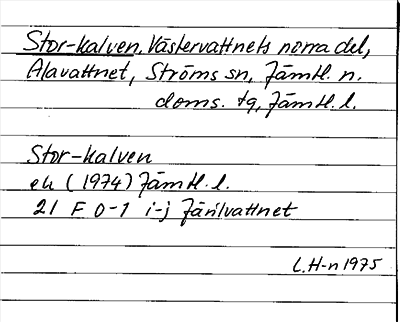 Stor-kalven. Västervattnets norra del,
Alavattnet, Ströms sn, Jämtl. n.
doms. tg, Jämtl. l.
Stor-kalven
ek (1974) Jämtl. l.
21 F 0-1 i-j Järilvattnet
L.H-n 1975